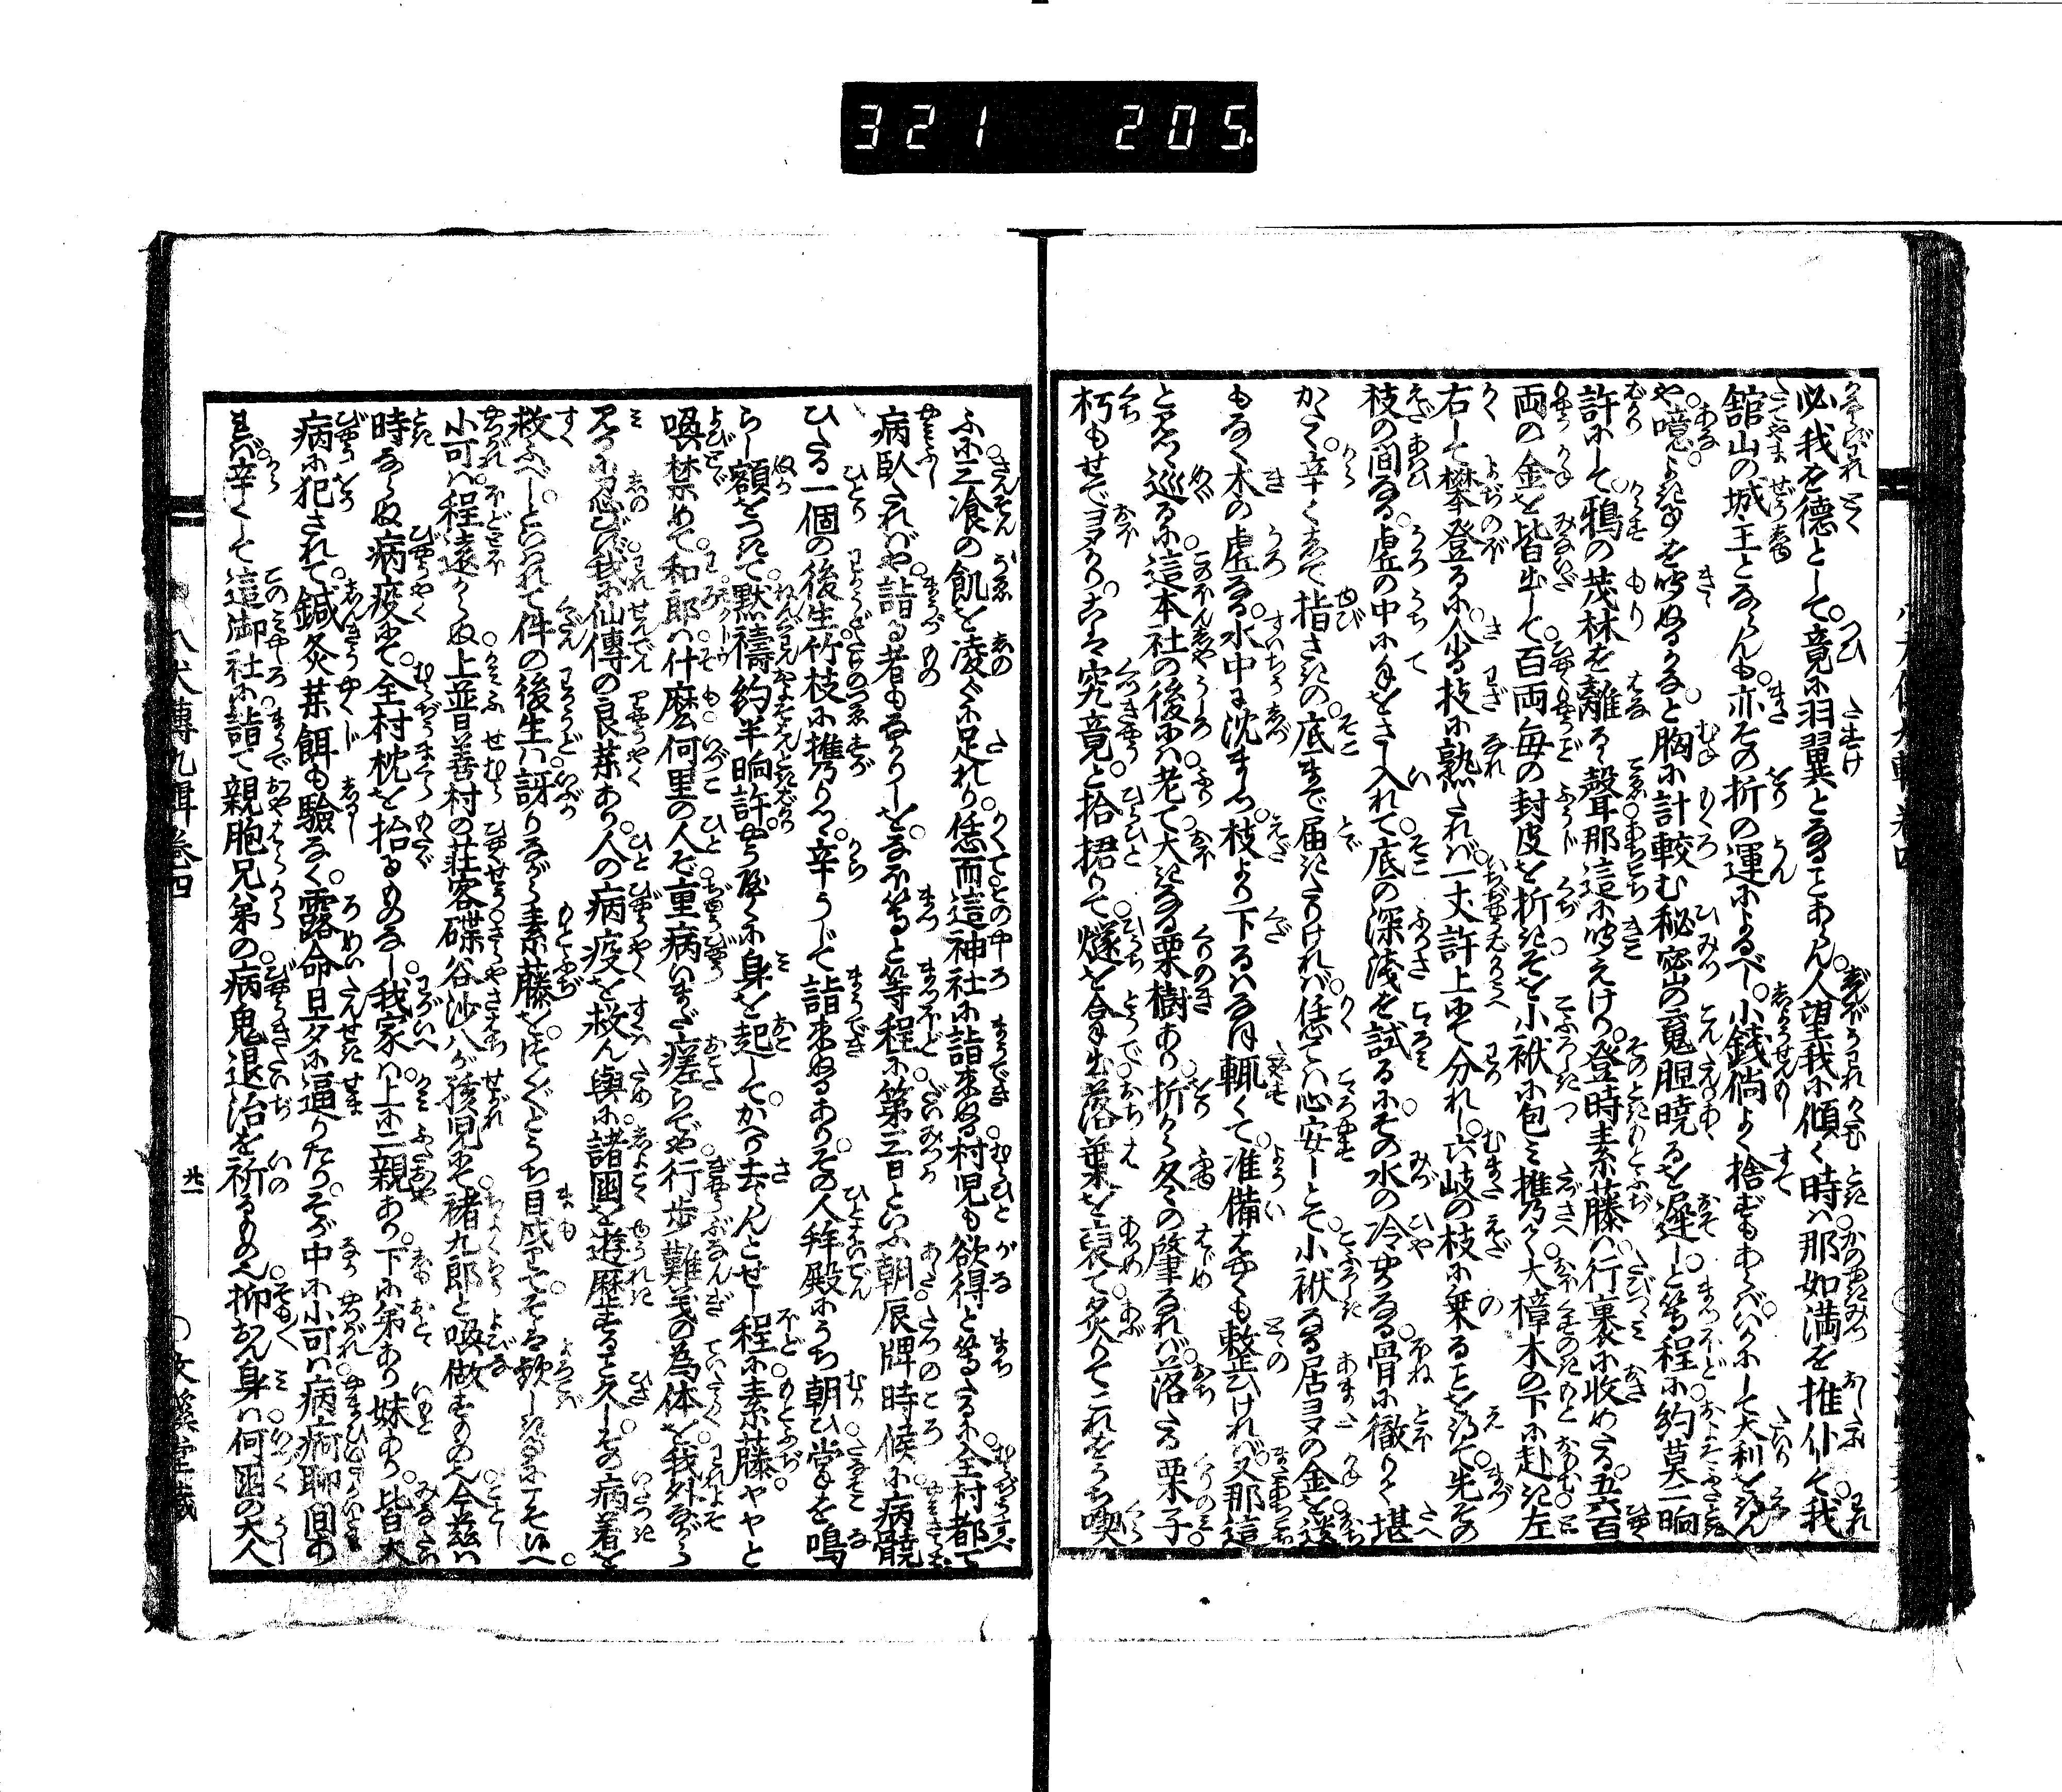 321 205
必我を徳として。竟に羽翼となることあらん。人望我に傾く時は。那如満を推仆て。我
舘山の城主とならんも。亦その折の運によるべし。小銭倘よく捨ずもあらば。いかにして大利を得ん
や。噫よき事を聞ぬるかな。と胸に計較む秘密の魂胆。暁るを遅しと等程に。約莫一晌
許にして。鴉の茂林を離るゝ聲。那這に聞えけり。登時素藤は。行裏に收めたる。五六百
両の金を皆出して。百両毎の封皮を折きそを小袱に包み携りて。大樟木の下に赴き。左
右して攀登るに。少る技に熟たれば。一丈許上にて分れし。六岐の枝に乗ることを得て。先その
枝の間なる。虚の中に手をさし入れて。底の深淺を試るに。その水の冷やかなる。骨に徹りて堪
かたく。辛くして指さきの。底まで届きたりければ。恁ては心安しとて。小袱なる居ヨタの金を。遺
もなく木の虚なる。水中に沈まし。枝より下るはなほ輙くて。准備はやくも整ひければ。又那這
と見つゝ巡るに。這本社の後には。老て大きなる栗樹あり。折から冬の肇なれば。落たる栗子
朽もせでヨタかり。こは究竟と拾捃りて。燧を合出落葉を裒て。炙りてこれをうち喫
ふに。三飡の飢を凌ぐに足れり。恁而這神社に詣来ぬる。村児も欲得と等たるに。全村都て
病臥たればや。詣る者もなかりしを。なほ等と等程に。第三日といふ朝。辰牌時候に病髐
ひたる一個の後生。竹枝に携りつゝ。辛うじて詣来ぬるあり。その人拜殿にうち朝ひ。掌を鳴
らし額をつきて。黙禱約半晌許。やうやくに身を起して。かへり去らんとせし程に。素藤やゝと
喚禁めて。和郎は什麼何里の人ぞ。重病いまだ瘥らでや。行歩難義の為体を。我外ながら
見るに忍びず。我に仙傳の良薬あり。人の病疫を救ん與に。諸國を遊歴すること久し。その病着を
救ふべし。といはれて件の後生は。訝りながら素藤を。つくづくとうち目戍りて。そは歓しき事にそ候へ。
小可は程遠からぬ。上並日善村の荘客。礫谷沙八が孩児にて。褚九郎と喚做すもの也。今茲は
時ならぬ病疫にて。全村枕を抬るものなし。我家は上に二親あり。下に弟あり妹あり。皆大
病に犯されて。鍼灸薬餌も驗なく。露命旦夕に逼りたり。そが中に小可は。病痾聊間あ
れば。辛くして這御社に。詣て親胞兄弟の。病鬼退治を祈るもの也。抑おん身は何國の大人
八犬傳九輯巻四
廿一
文溪堂藏